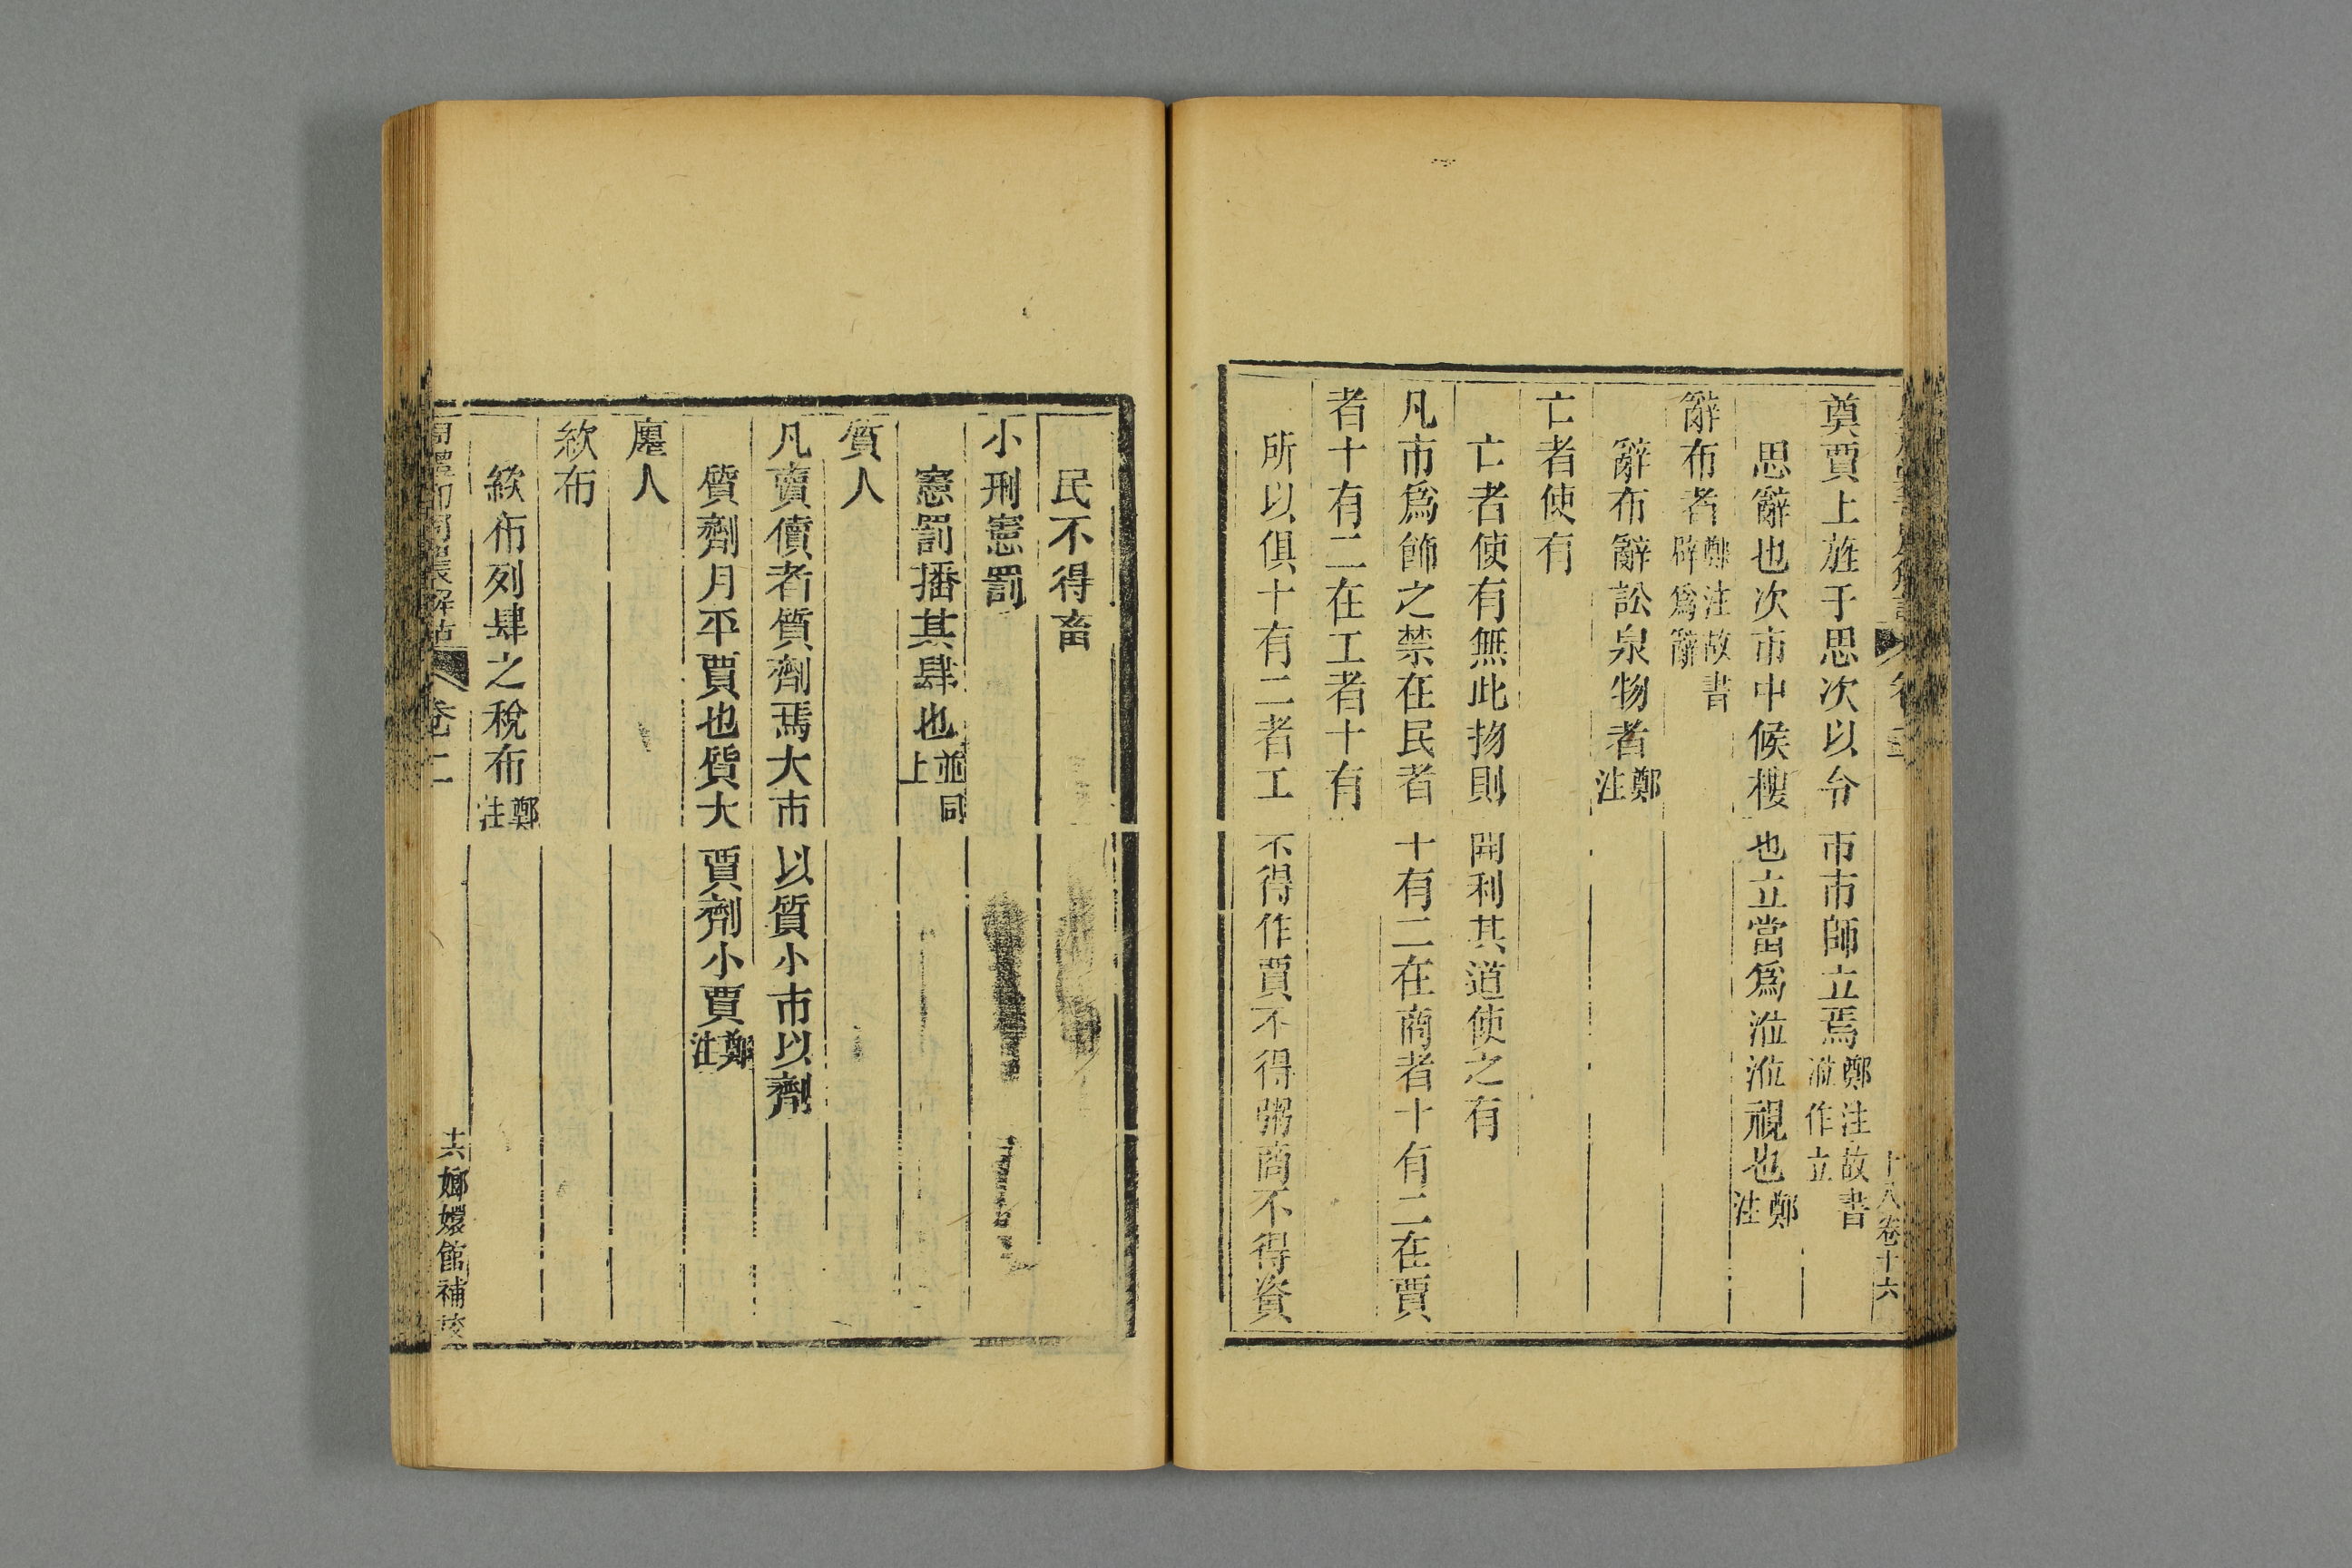 奠賈上旌于思次以令市市師立焉鄭注故書涖作立
思辭也次市中候樓也立當爲涖涖視也鄭注
辭布者鄭注故書辟爲辭
辭布辭訟泉物者鄭注
亡者使有
亡者使有無此物則開利其道使之有
凡市爲飾之禁在民者十有二在商者十有二在賈
者十有二在工者十有
所以俱十有二者工不得作賈不得粥商不得資
十八卷十六
民不得畜
小刑憲罰
憲罰播其肆也並同上
質人
凡賣儥者質劑焉大市以質小市以劑
質劑月平賈也質大賈劑小賈鄭注
廛人
絘布
絘布列肆之稅布鄭注
卷二
嫏嬛館補校